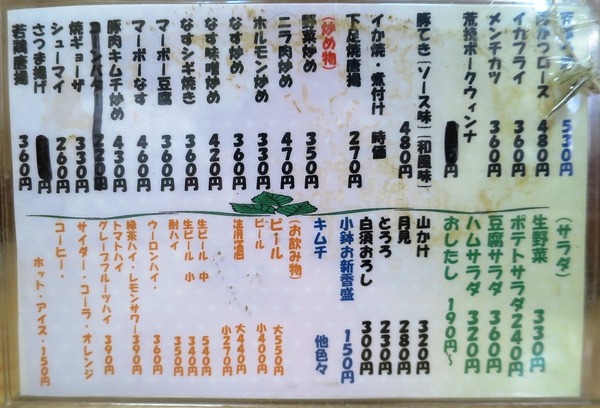 530円
かつロース 480円
イカフライ 360円
メンチカツ 360円
荒挽ポークウィンナ 円
豚てき(ソース味)(和風味) 480円
イか焼・煮付け 時価
下足焼唐揚 270円
(炒め物)
野菜炒め 350円
ニラ肉炒め 470円
ホルモン炒め 330円
なす炒め 360円
なす味噌炒め 420円
なすシギ焼き 420円
マーボー豆腐 360円
マーボーなす 460円
豚肉キムチ炒め 430円
コーンバター 220円
焼ギョーザ 330円
シューマイ 260円
さつま揚げ 円
若鶏唐揚 360円
(サラダ)
生野菜 330円
ポテトサラダ 240円
豆腐サラダ 360円
ハムサラダ 320円
おしたし 190円~
山かけ 320円
月見 280円
とろろ 230円
白須おろし 300円
小鉢お新香盛 150円
キムチ 他色々
(お飲み物)
ビール 大550円
ビール 小400円
清酒 大440円
小270円
生ビール 中 540円
生ビール 小 340円
酎ハイ 350円
ウーロンハイ・ 360円
緑茶ハイ・レモンサワー 390円
トマトハイ
グレープフルーツハイ 390円
サイダー・コーラ・オレンジ
コーヒー・
ホット・アイス・150円